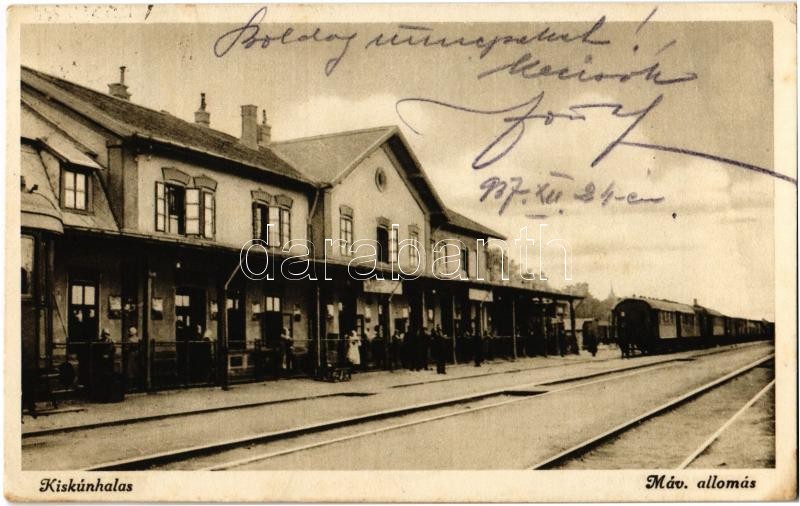 Boldog ünnepeket!
937. XII. 24-én
darabanth
Kiskúnhalas
Máv. allomás